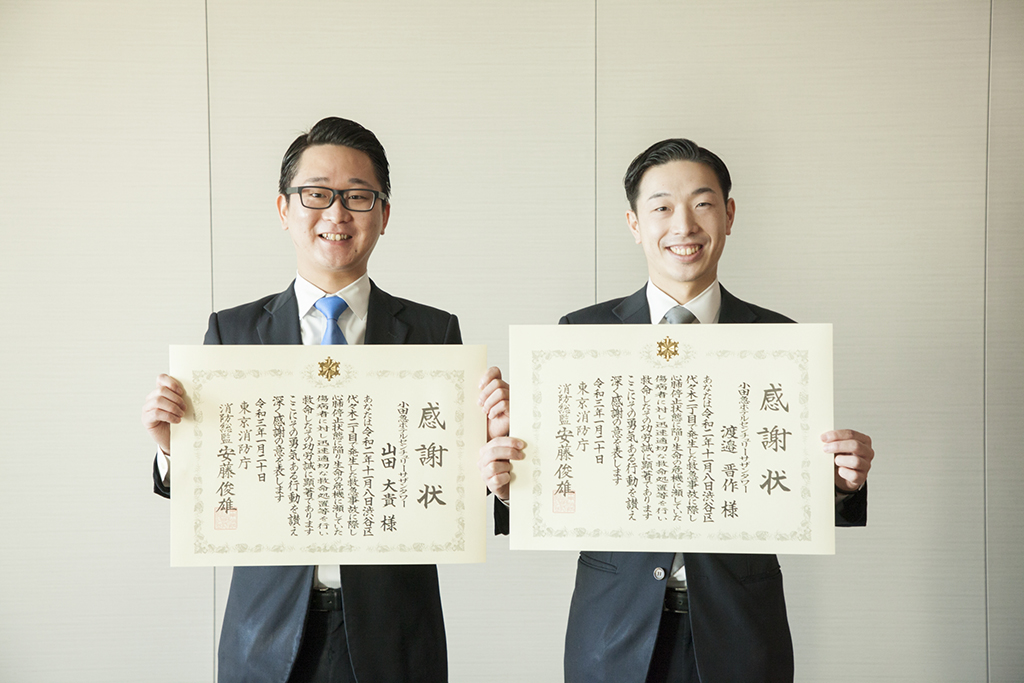 感謝状
小田急ホテルセンチュリーサザンタワー
山田大貴様
あなたは令和二年十一月八日渋谷区
代々木二丁目で発生した救急事故に際し
心肺停止状態に陥り生命の危機に瀕していた
傷病者に対し迅速適切な救命処置等を行い
救命したその功労誠に顕著であります
ここにその勇気ある行動を讃え
深く感謝の意を表します
令和三年一月二十日
東京消防庁
消防総監安藤俊雄
感謝状
小田急ホテルセンチュリーサザンタワー
渡邉晋作様
あなたは令和二年十一月八日渋谷区
代々木二丁目で発生した救急事故に際し
心肺停止状態に陥り生命の危機に瀕していた
傷病者に対し迅速適切な救命処置等を行い
救命したその功労誠に顕著であります
ここにその勇気ある行動を讃え
深く感謝の意を表します
令和三年一月二十日
東京消防庁
消防総監安藤俊雄